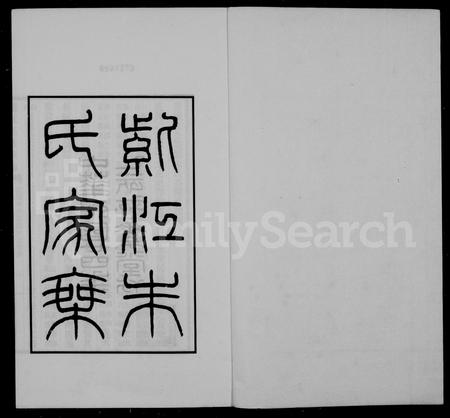 紫江朱
氏家乘
FamilySearch